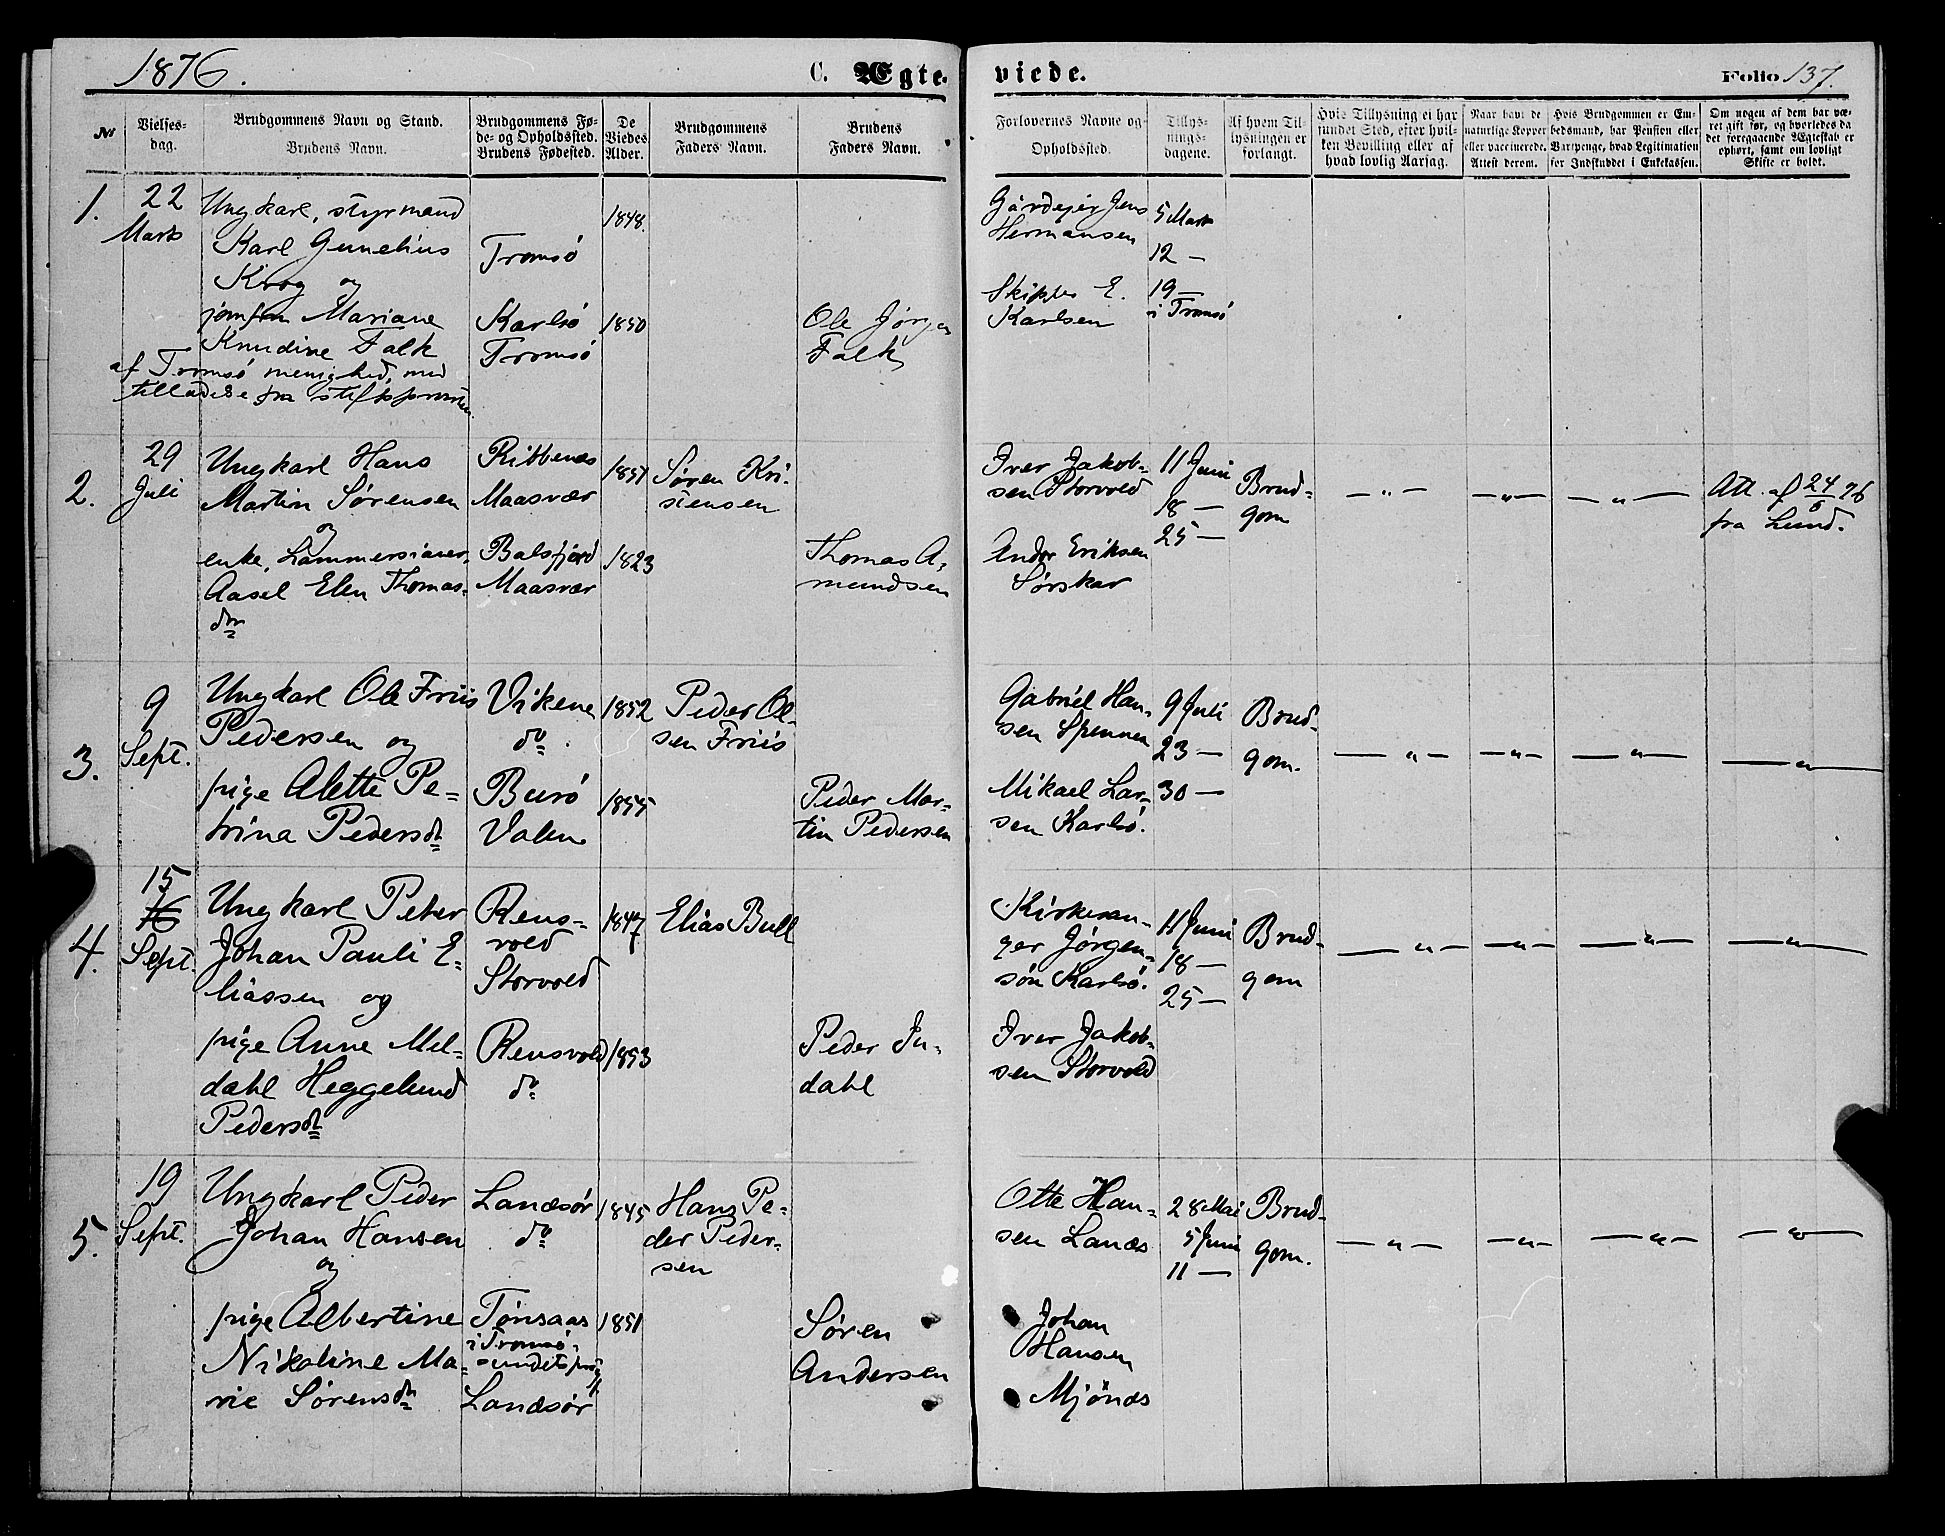 1876.
C. Ægte-
viede.
Folio 137.
№
Vielses-
dag.
Brudgommens Navn og Stand.
Brudens Navn.
Brudgommens Fø-
de- og Opholdssted.
Brudens Fødested.
De
Viedes
Alder.
Brudgommens
Faders Navn.
Brudens
Faders Navn.
Forlovernes Navne og
Opholdssted.
Tillys-
nings-
dagene.
Af hvem Til-
lysningen er
forlangt.
Hvis Tillysning ei har
fundet Sted, efter hvil-
ken Bevilling eller af
hvad lovlig Aarsag.
Naar havt de
naturlige Kopper
eller vaccinerede.
Attest derom.
Hvis Brudgommen er Em-
bedsmand, har Pension eller
Vartpenge, hvad Legitimation
for Indskuddet i Enkekassen.
Om nogen af dem har væ-
ret gift før, og hvorledes da
det foregaaende Ægteskab er
ophørt, samt om lovligt
Skifte er holdt.
1.
22
Marts
Ungkarl, styrmand
Karl Gunelius
Krog og
jomfru Mariane
Knudine Falk
af Tromsö menighed, med
tilladelse fra stiftsprovsten.
Tromsö
Karlsö
Tromsö
1848.
1850
Ole Jørgen
Falk
Gårdejer Jens
Hermansen
Skipper E.
Karlsen
5 Marts
12 —
19 —
i Tromsö
2.
29
Juli
Ungkarl Hans
Martin Sørensen
og
enke, Lammersianer,
Aasel Elen Thomas-
dtr
Ribbenes
Maasvær
Balsfjord
Maasvær
1851
1823
Søren Kri-
stensen
Thomas A-
mundsen
Iver Jakob-
sen Storvold
Andor Eriksen
Sørskar
11 Juni
18 —
25 —
Brud-
gom
— " —
— " —
— " —
Att. af 24/6 76
fra Lund.
3.
9
Sept.
Ungkarl Ole Friis
Pedersen og
pige Alette Pe-
trina Pedersdtr
Vikene
do.
Burö
Valen
1852
1855
Peder Ol-
sen Friis
Peder Mar-
tin Pedersen
Gabriel Han-
sen Spennen
Mikael Lar-
sen Karlsö.
9 Juli
23 —
30 —
Brud-
gom.
— " —
— " —
— " —
— " —
4.
15
16
Sept.
Ungkarl Peter
Johan Pauli E-
liassen og
pige Anne Mel-
dahl Heggelund
Pedersdtr
Rens-
vold
Storvold
Rensvold
do
1847
1853
Elias Bull
Peder In-
dahl
Kirkesan-
ger Jørgen-
sön Karlsö.
Iver Jakob-
sen Storvold
11 Juni
18 —
25 —
Brud-
gom
— " —
— " —
— " —
— " —
5.
19
Sept.
Ungkarl Peder
Johan Hansen
og
pige Albertine
Nikoline Ma-
rie Sørensdtr
Lanæsør
do
Tønsaas
i Tromsö-
sundets præst
Lanæsør
1845
1851
Hans Pe-
der Peder-
sen
Søren
Andersen
Otte Han-
sen Lanæs
Johan
Hansen
Mjönæs
28 Mai
5 Juni
11 —
Brud-
gom.
— " —
— " —
— " —
— " —